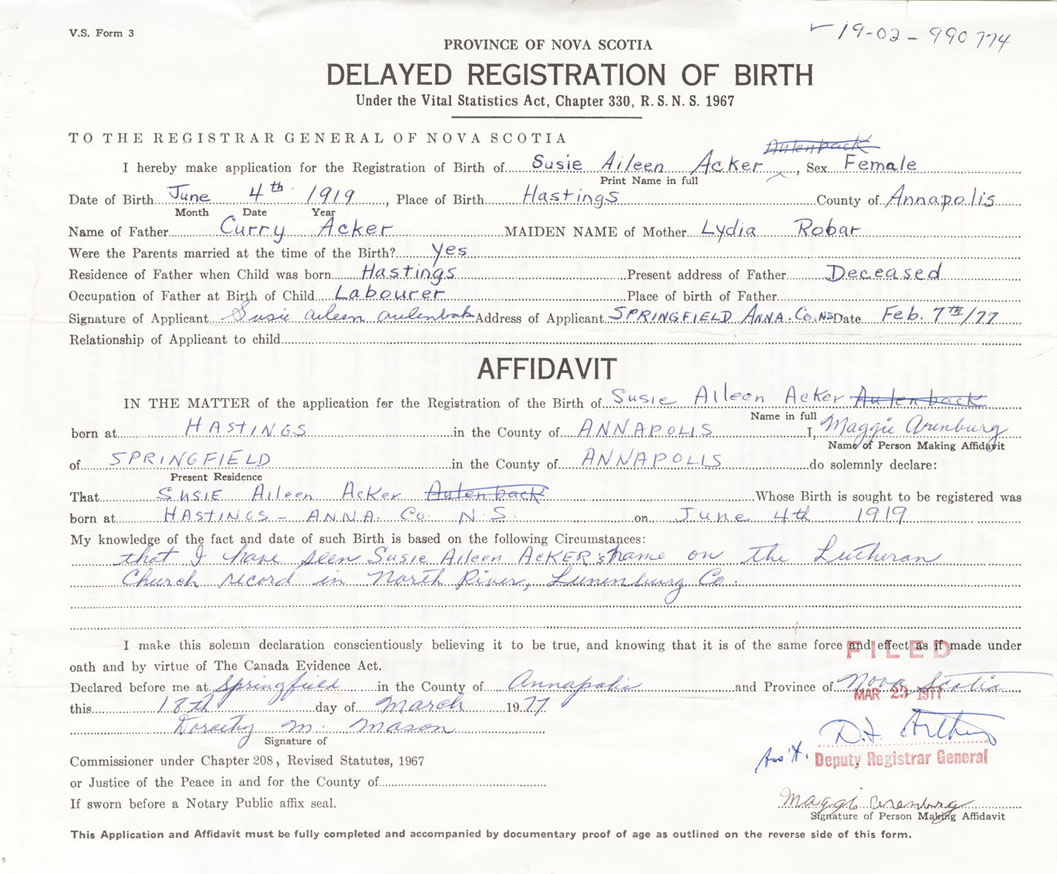 V.S. Form 3
19-02-990774
PROVINCE OF NOVA SCOTIA
DELAYED REGISTRATION OF BIRTH
Under the Vital Statistics Act, Chapter 330, R.S.N.S. 1967
TO THE REGISTRAR GENERAL OF NOVA SCOTIA
Autenback
I hereby make application for the Registration of Birth of Susie Aileen Acker, Sex Female
Print Name in full
Date of Birth June 4th 1919, Place of Birth Hastings County of Annapolis
Month Date Year
Name of Father Curry Acker MAIDEN NAME of Mother Lydia Robar
Were the Parents married at the time of the Birth? Yes
Residence of Father when Child was born Hastings Present address of Father Deceased
Occupation of Father at Birth of Child Labourer Place of birth of Father
Signature of Applicant Susie aileen Address of Applicant SPRINGFIELD ANNA. Co. NS Date Feb. 7TH/77
Relationship of Applicant to child
AFFIDAVIT
IN THE MATTER of the application for the Registration of the Birth of Susie Aileen Acker Autenback
Name in full
born at HASTINGS in the County of ANNAPOLIS I, Maggie Arenburg
Name of Person Making Affidavit
of SPRINGFIELD in the County of ANNAPOLIS do solemnly declare:
Present Residence
That SUSIE Aileen Acker Autenback Whose Birth is sought to be registered was
born at HASTINGS - ANNA. Co. N.S. on June 4th 1919
My knowledge of the fact and date of such Birth is based on the following Circumstances:
that I have seen Susie Aileen AcKER's name on the Lutheran
Church record in North River, Lunenburg Co.
I make this solemn declaration conscientiously believing it to be true, and knowing that it is of the same force and effect as if made under
FILED
oath and by virtue of The Canada Evidence Act.
Declared before me at Springfield in the County of Annapolis and Province of Nova Scotia
MAR 23 1977
this 18th day of March 1977
Dorothy M. Mason
Signature of
Commissioner under Chapter 208, Revised Statutes, 1967
Deputy Registrar General
or Justice of the Peace in and for the County of
If sworn before a Notary Public affix seal.
Maggie Arenburg
Signature of Person Making Affidavit
This Application and Affidavit must be fully completed and accompanied by documentary proof of age as outlined on the reverse side of this form.